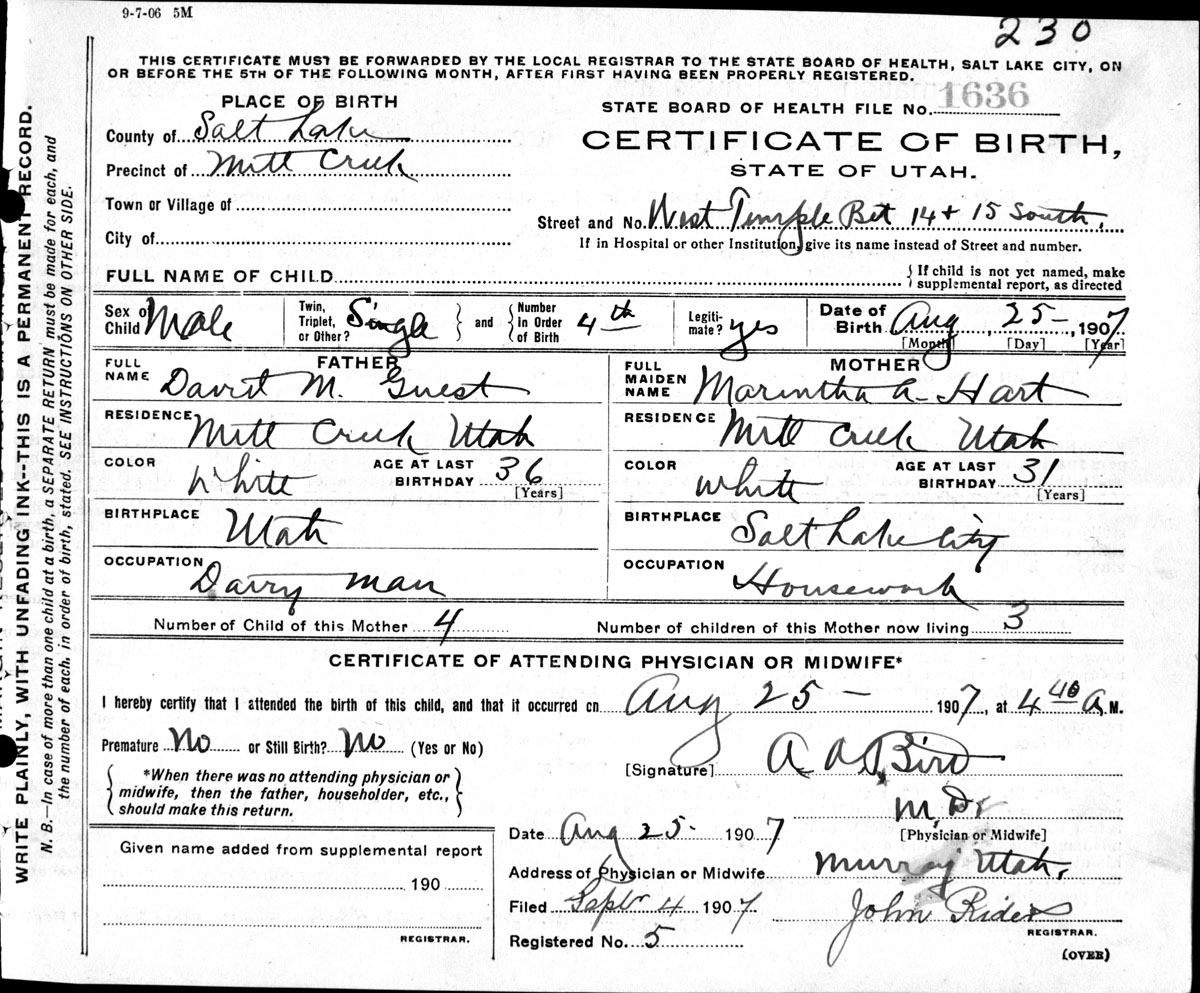 9-7-06 5M
230
THIS CERTIFICATE MUST BE FORWARDED BY THE LOCAL REGISTRAR TO THE STATE BOARD OF HEALTH, SALT LAKE CITY, ON
OR BEFORE THE 5TH OF THE FOLLOWING MONTH, AFTER FIRST HAVING BEEN PROPERLY REGISTERED.
PLACE OF BIRTH
County of Salt Lake
Precinct of Mill Creek
Town or Village of
City of
STATE BOARD OF HEALTH FILE No. 1636
CERTIFICATE OF BIRTH,
STATE OF UTAH.
Street and No. West Temple Bet 14 + 15 South.
If in Hospital or other Institution, give its name instead of Street and number.
FULL NAME OF CHILD
If child is not yet named, make
supplemental report, as directed
Sex of Child Male
Twin, Triplet, or Other? Single and Number In Order of Birth 4th
Legiti-mate? yes
Date of Birth Aug, 25, 1907
[Month] [Day] [Year]
FATHER
FULL NAME David M. Guest
RESIDENCE Mill Creek Utah
COLOR White AGE AT LAST BIRTHDAY 36
[Years]
BIRTHPLACE Utah
OCCUPATION Dairy man
MOTHER
FULL MAIDEN NAME Marintha A. Hart
RESIDENCE Mill Creek Utah
COLOR White AGE AT LAST BIRTHDAY 31
[Years]
BIRTHPLACE Salt Lake City
OCCUPATION Housework
Number of Child of this Mother 4
Number of children of this Mother now living 3
CERTIFICATE OF ATTENDING PHYSICIAN OR MIDWIFE*
I hereby certify that I attended the birth of this child, and that it occurred on Aug 25 - 1907, at 4 40 A. M.
Premature? No or Still Birth? No (Yes or No)
*When there was no attending physician or
midwife, then the father, householder, etc.,
should make this return.
[Signature] A. A. Bird
M. D.
[Physician or Midwife]
Date Aug 25- 1907
Address of Physician or Midwife Murray Utah.
Filed Septr 4 1907 John Rider
REGISTRAR.
Registered No. 5
(OVER)
Given name added from supplemental report
190
REGISTRAR.
WRITE PLAINLY, WITH UNFADING INK--THIS IS A PERMANENT RECORD.
N. B.—In case of more than one child at a birth, a SEPARATE RETURN must be made for each, and
the number of each, in order of birth, stated. SEE INSTRUCTIONS ON OTHER SIDE.